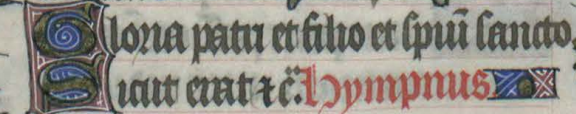 Gloria patri et filio et spiūi sancto.
Sicut erat ⁊ c̄. Hympnus